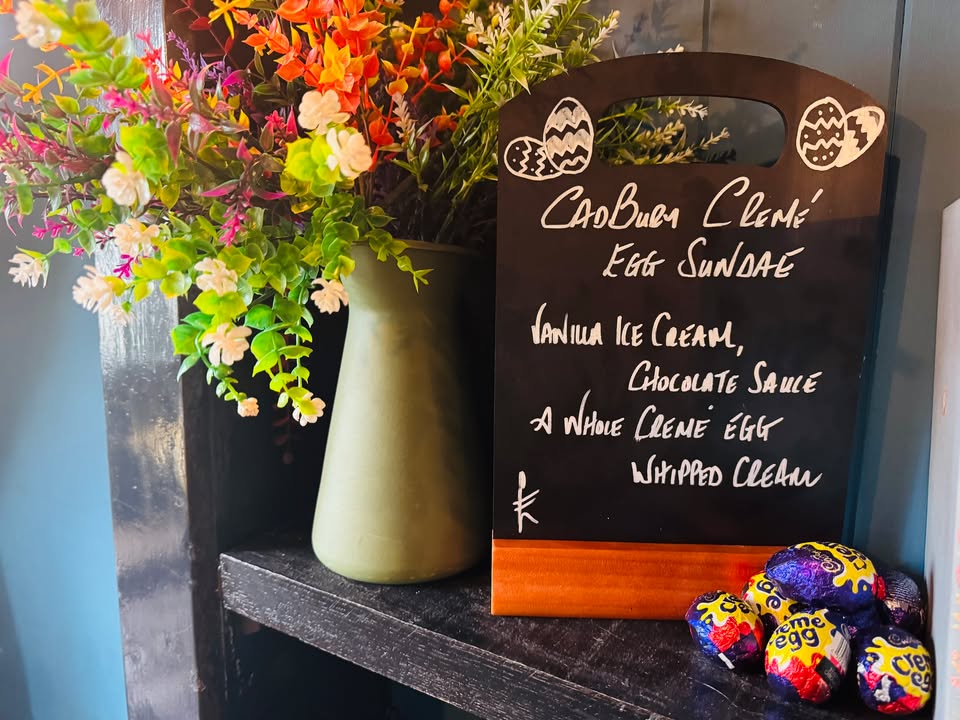 CADBURY CREMÉ
EGG SUNDAE
VANILLA ICE CREAM,
CHOCOLATE SAUCE
A WHOLE CREMÉ EGG
WHIPPED CREAM
creme
egg
creme
egg